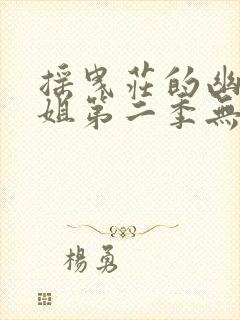 採曳莊的幽
姐第二季無
楊勇